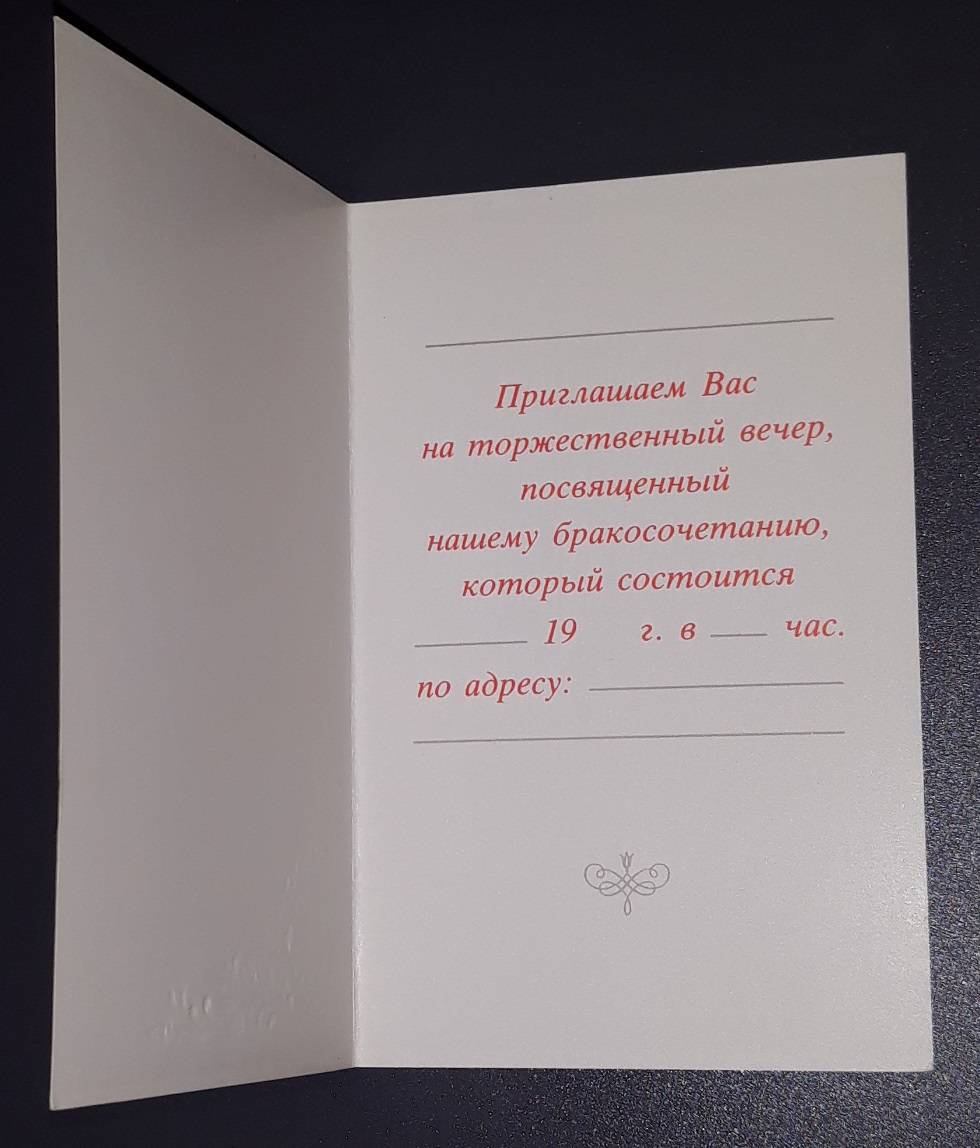 Приглашаем Вас
на торжественный вечер,
посвященный
нашему бракосочетанию,
который состоится
______ 19 г. в ___ час.
по адресу: ______________